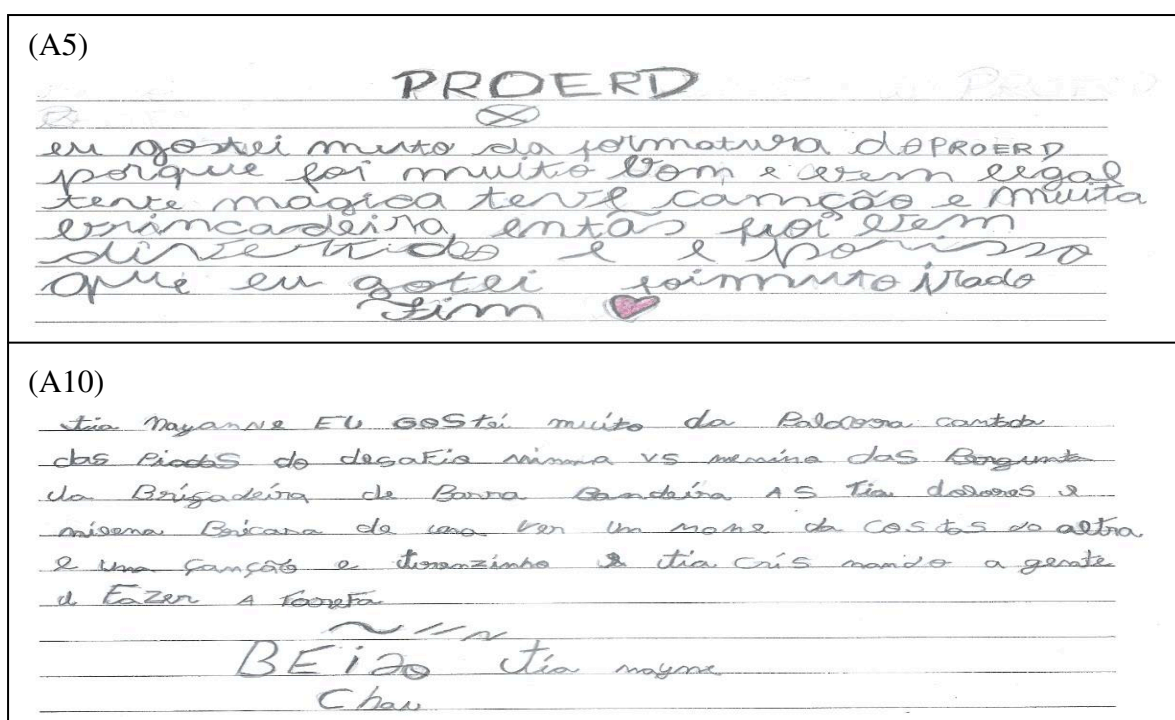 (A5)
PROERD
eu gostei muto da formatura doPROERD
porque foi muitio bom e bem legal
teve magica teve camção e muita
brincadeira, então fuoi bem
divertido e e porisso
que eu gotei foimuito irado
Fim
(A10)
tia nayanne EU GOSTEi muito da Palavra cantada
das PiadaS do desaFio minina vs menino daS Bergunta
da Brigadeira de Barra Bandeira AS Tia dolores e
de uma ver um nome da coStaS do altra
e uma Canção e tia Cris mando a gente
FaZer A TareFa
BEiJo tia nayne
Chau